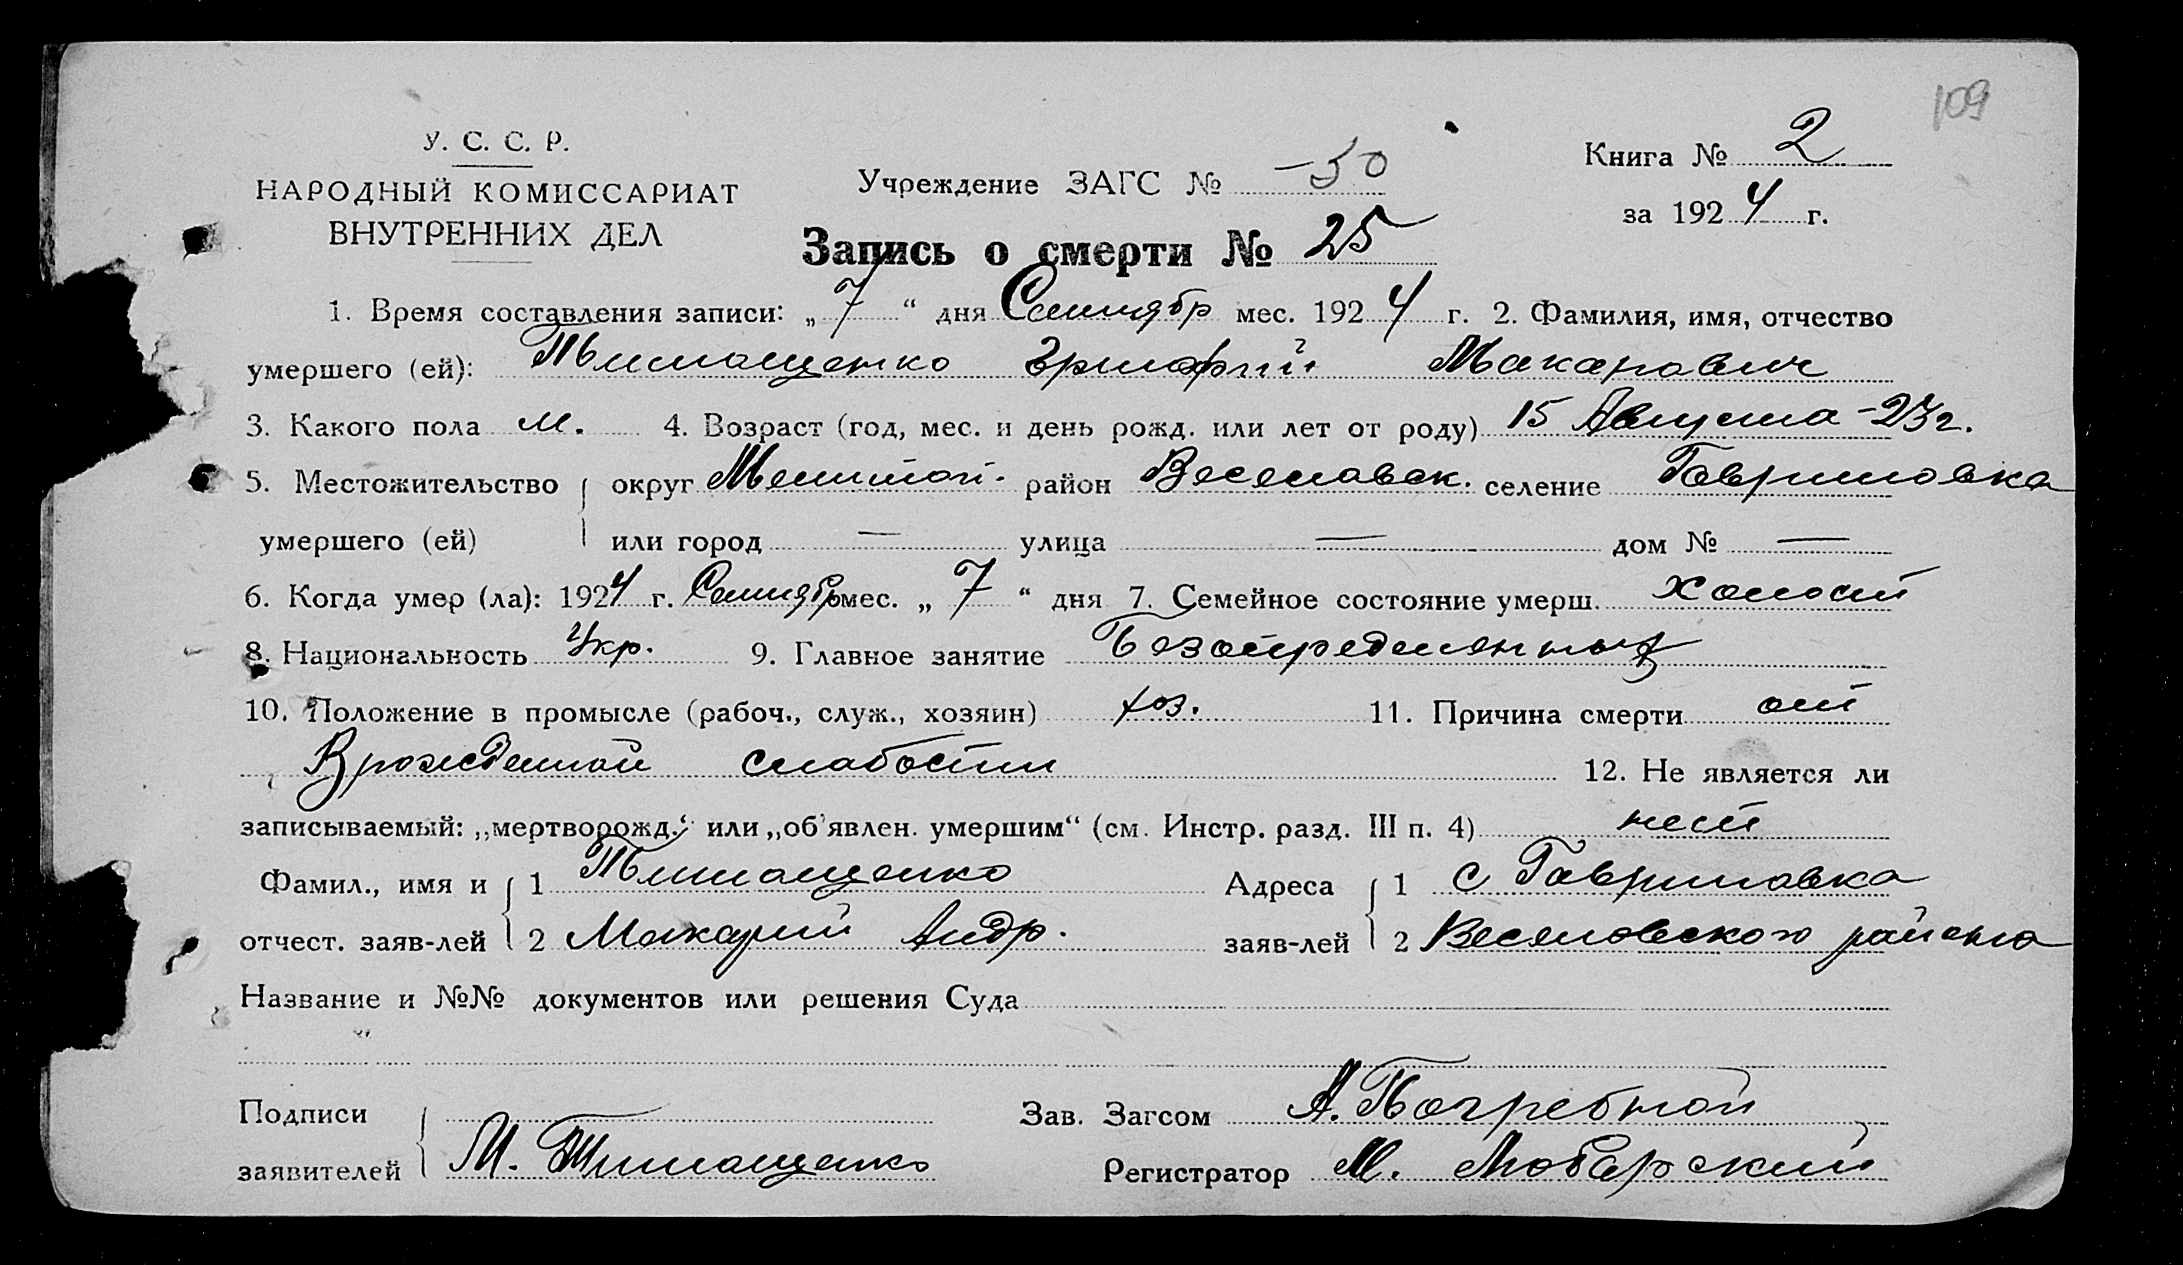 109
У. С. С. Р.
НАРОДНЫЙ КОМИССАРИАТ
ВНУТРЕННИХ ДЕЛ
Учреждение ЗАГС № -50
Книга № 2
за 1924 г.
Запись о смерти № 25
1. Время составления записи: „7“ дня Сентябр мес. 1924 г. 2. Фамилия, имя, отчество
умершего (ей): Тимощенко Макарович
3. Какого пола м. 4. Возраст (год, мес. и день рожд. или лет от роду) 15 Августа -23 г.
5. Местожительство округ Мелитоп. район Веселовск. селение Гавриловка
умершего (ей) или город — улица — дом № —
6. Когда умер (ла): 1924 г. Сентябр мес. „7“ дня 7. Семейное состояние умерш. холост
8. Национальность Укр. 9. Главное занятие
10. Положение в промысле (рабоч., служ., хозяин) хоз. 11. Причина смерти от
Врожденной слабости 12. Не является ли
записываемый: „мертворожд.“ или „об'явлен. умершим“ (см. Инстр. разд. III п. 4) нет
Фамил., имя и 1 Тимощенко Адреса 1 с Гавриловка
отчест. заяв-лей 2 Макарий Андр. заяв-лей 2 Веселовского района
Название и №№ документов или решения Суда
Подписи Зав. Загсом А. Погребной
заявителей М. Тимощенко Регистратор М. Любарский